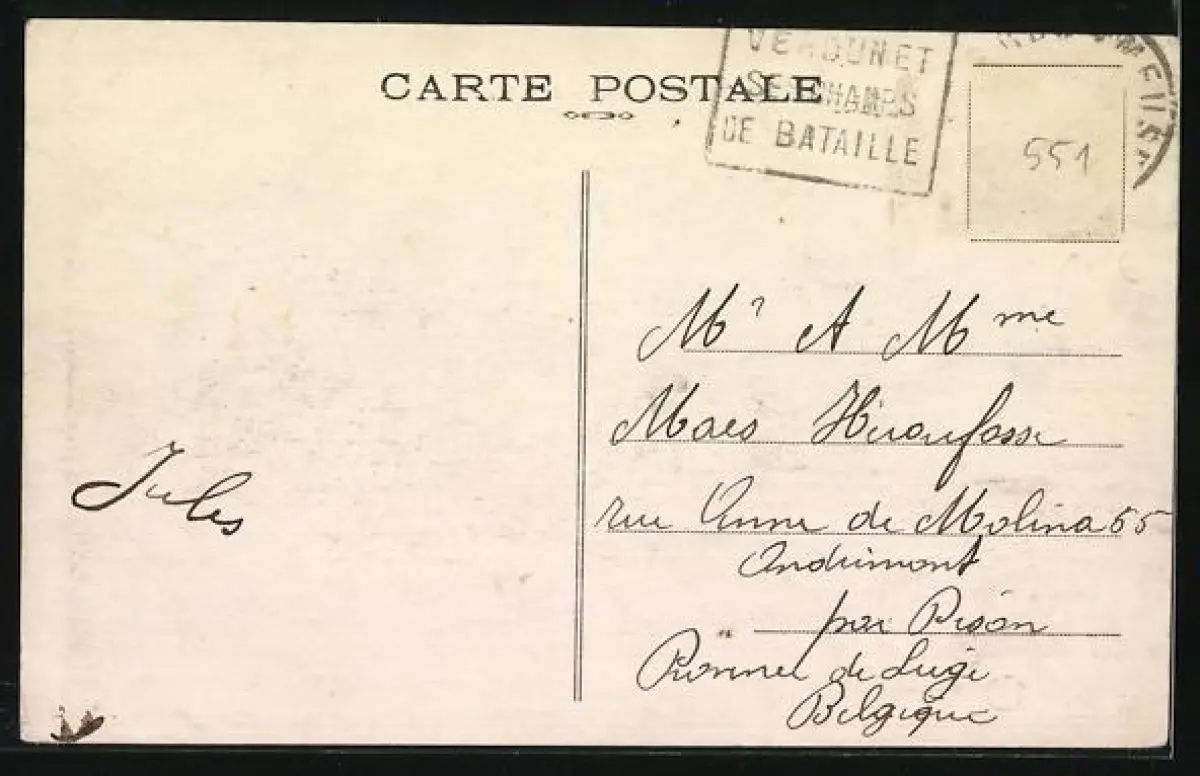 CARTE POSTALE
VERDUN ET
SES CHAMPS
DE BATAILLE
551
Mr et Mme
Maes
rue Anne de Molina 55
Andrimont
par Dison
Province de Liège
Belgique
Jules